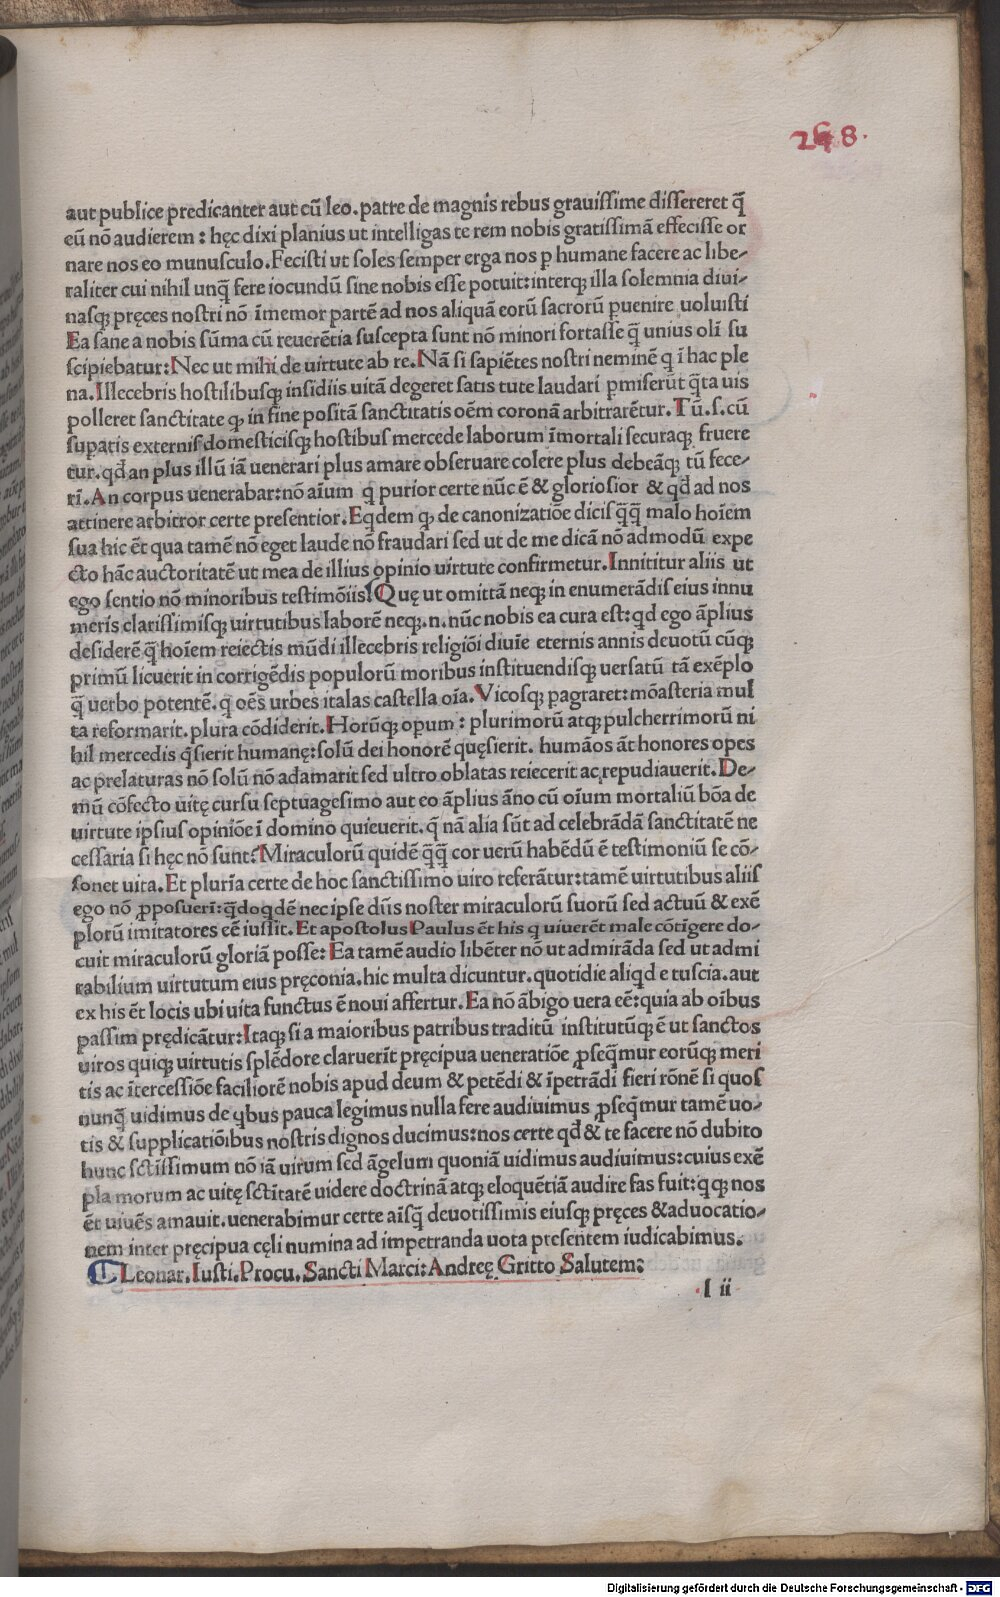 268.
aut publice predicanter aut cū leo. patre de magnis rebus grauissime dissereret q̄
eū nō audierem : hęc dixi planius ut intelligas te rem nobis gratissimā effecisse or
nare nos eo munusculo. Fecisti ut soles semper erga nos ꝑ humane facere ac libe-
raliter cui nihil unq̄ fere iocundū sine nobis esse potuit: interqꝫ illa solemnia diui-
nasqꝫ pręces nostri nō īmemor partē ad nos aliquā eorū sacrorū ꝑuenire uoluisti
Ea sane a nobis sūma cū reuerētia suscepta sunt nō minori fortasse q̄ unius oli su
scipiebatur: Nec ut mihi de uirtute ab re. Nā si sapiētes nostri neminē q ī hac ple
na. Illecebris hostilibusqꝫ insidiis uitā degeret satis tute laudari ꝑmiserūt q̄ta uis
polleret sanctitate qꝫ in fine positā sanctitatis oēm coronā arbitrarētur. Tū. s. cū
suꝑatis externis domesticisqꝫ hostibus mercede laborum īmortali securaqꝫ fruere
tur. qđ an plus illū iā uenerari plus amare obseruare colere plus debeāqꝫ tū fece-
ri. An corpus uenerabar: nō aīum q purior certe nūc ē & gloriosior & qđ ad nos
attinere arbitror certe presentior. Eqdem qꝫ de canonizatiōe dicis q̄q̄ malo hoīem
sua hic ēt qua tamē nō eget laude nō fraudari sed ut de me dicā nō admodū expe
cto hāc auctoritatē ut mea de illius opinio uirtute confirmetur. Innititur aliis ut
ego sentio nō minoribus testimōiis! Quę ut omittā neqꝫ in enumerādis eius innu
meris clarissimisqꝫ uirtutibus laborē neqꝫ. n. nūc nobis ea cura est: qd ego āplius
desiderē q̄ hoīem reiectis mūdi illecebris religiōi diuie eternis annis deuotū cūqꝫ
primū licuerit in corrigēdis populorū moribus instituendisqꝫ uersatū tā exēplo
q̄ uerbo potentē. q oēs urbes italas castella oīa. Vicosqꝫ ꝑagraret: mōasteria mul
ta reformarit. plura cōdiderit. Horūqꝫ opum : plurimorū atqꝫ pulcherrimorū ni
hil mercedis q̄sierit humanę: solū dei honorē quęsierit. humāos āt honores opes
ac prelaturas nō solū nō adamarit sed ultro oblatas reiecerit ac repudiauerit. De-
mū cōfecto uitę cursu septuagesimo aut eo āplius āno cū oīum mortaliū bōa de
uirtute ipsius opiniōe ī domino quieuerit. q̄ nā alia sūt ad celebrādā sanctitatē ne
cessaria si hęc nō sunt? Miraculorū quidē q̄q̄ cor uerū habēdū ē testimoniū se cō-
sonet uita. Et plurīa certe de hoc sanctissimo uiro referātur: tamē uirtutibus aliis
ego nō ꝓposueri: q̄doqdē nec ipse dn̄s noster miraculorū suorū sed actuū & exē
plorū imitatores eē iussit. Et apostolus Paulus ēt his q uiuerēt male cōtigere do-
cuit miraculorū gloriā posse: Ea tamē audio libēter nō ut admirāda sed ut admi
rabilium uirtutum eius pręconia. hic multa dicuntur. quotidie aliqd e tuscia. aut
ex his ēt locis ubi uita functus ē noui affertur. Ea nō ābigo uera eē: quia ab oībus
passim prędicātur: Itaqꝫ si a maioribus patribus traditū institutūqꝫ ē ut sanctos
uiros quiqꝫ uirtutis splēdore claruerīt pręcipua ueneratiōe ꝓseq̄mur eorūqꝫ meri
tis ac ītercessiōe faciliorē nobis apud deum & petēdi & īpetrādi fieri rōnē si quos
nunq̄ uidimus de qbus pauca legimus nulla fere audiuimus ꝓseq̄mur tamē uo-
tis & supplicatiōibus nostris dignos ducimus: nos certe qđ & te facere nō dubito
hunc sctīssimum nō iā uirum sed āgelum quoniā uidimus audiuimus: cuius exē
pla morum ac uitę sctītatē uidere doctrinā atqꝫ eloquētiā audire fas fuit: q qꝫ nos
ēt uiuēs amauit. uenerabimur certe aīsq̄ deuotissimis eiusqꝫ pręces & aduocatio-
nem inter pręcipua cęli numina ad impetranda uota presentem iudicabimus.
Leonar. Iusti. Procu. Sancti Marci: Andreę Gritto Salutem:
l ii
Digitalisierung gefördert durch die Deutsche Forschungsgemeinschaft - DFG